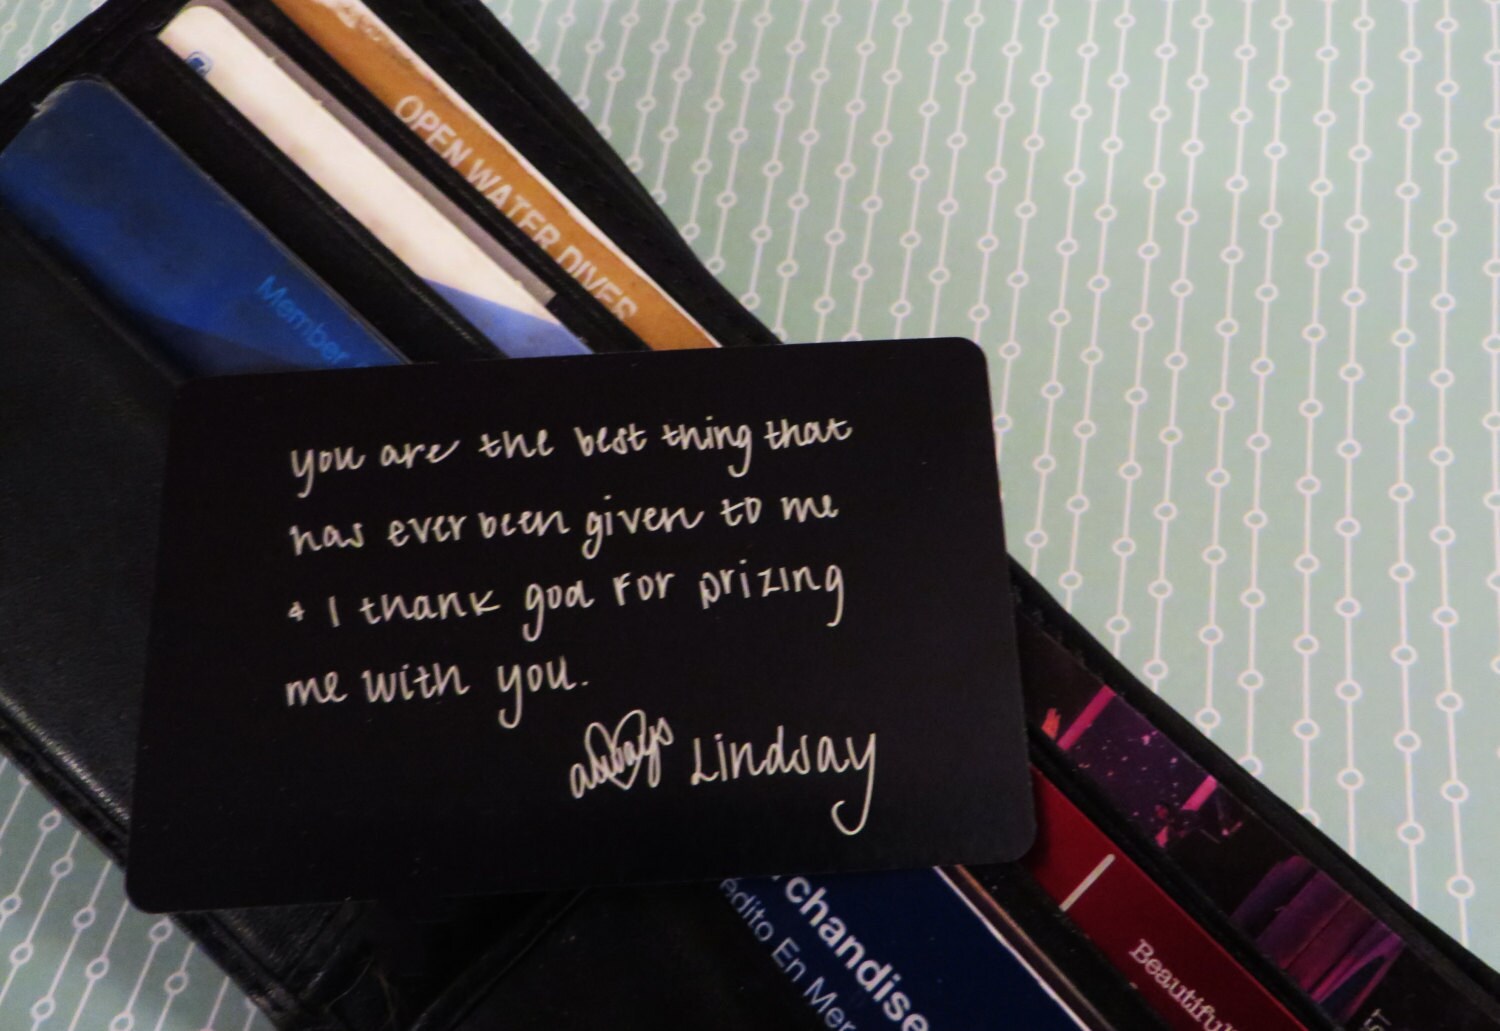 OPEN WATER DIVER
Member
You are the best thing that
has ever been given to me
& I thank god for prizing
me with you.
always Lindsay
chandise
édito En Mer
Beautiful